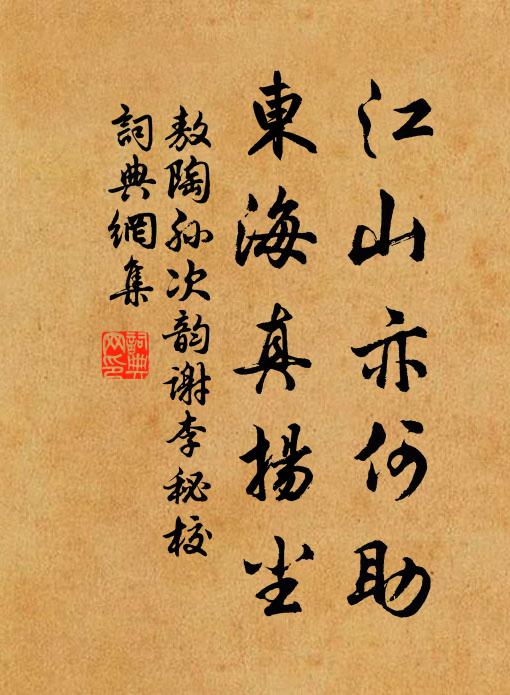 江山亦何助
東海真揚尘
敖陶孫次韵謝李秘校
詞典網集
詞典
网印